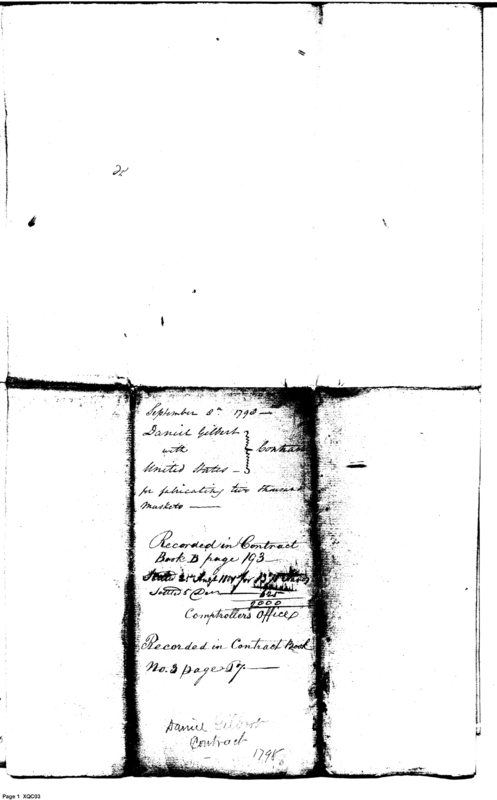 September 8th 1798 —
Daniel Gilbert
with } Contract
United States —
for fabricating two thousand
muskets —
Recorded in Contract
Book B page 193
Settled 5 Decr 625
2000
Comptroller's Office
Recorded in Contract Book
No. 3 page 57 —
Daniel Gilbert
Contract
1798
Page 1 XQC03